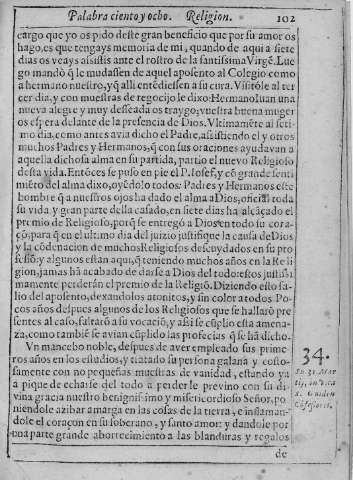 Palabra ciento y ocho. Religion. 102
cargo que yo os pido deste gran beneficio que por su amor os
hago, es que tengays memoria de mi, quando de aqui a siete
dias os veays assistis ante el rostro de la santissima Virgẽ. Lue
go mandò q̃ le mudassen de aquel aposento al Colegio como
a hermano nuestro, yq̃ alli entẽdiessen a su cura. Visitòle al ter
cer dia, y con muestras de regocijo le dixo: Hermano Iuan una
nueva alegre y muy desseada os traygo; vuestra buena muger
os espera delante de la presencia de Dios. Vltimamẽte al seti-
mo dia, como antes avia dicho el Padre, assistiendo el y otros
muchos Padres y Hermanos, q̃ con sus oraciones ayudavan a
aquella dichosa alma en su partida, partio el nuevo Religioso
desta vida. Entõces se puso en pie el P. Iosef, y cõ grande senti
miẽto del alma dixo, oyẽdolo todos: Padres y Hermanos este
hombre q̃ a nuestros ojos ha dado el alma a Dios, oficial toda
su vida, y gran parte della casado, en siete dias ha alcãçado el
premio de Religioso, porq̃ se entregò a Dios en todo su cora-
çõ, para q̃ en el ultimo dia del juizio justifique la causa de Dios
y la cõdenacion de muchos Religiosos descuydados en su pro
fessiõ: y algunos estan aqui, q̃ teniendo muchos años en la Reli
gion, jamas hã acabado de darse a Dios del todo: estos justissi-
mamente perderàn el premio de la Religiõ. Diziendo esto sa-
lio del aposento, dexandolos atonitos, y sin color a todos. Po-
cos años despues algunos de los Religiosos que se hallarõ pre
sentes al caso, faltarõ a su vocaciõ, y assi se cũplio esta amena-
za, como tambiẽ se avian cũplido las profecias q̃ se hã dicho.
Vn mancebo noble, despues de aver empleado sus prime-
ros años en los estudios, y tratado su persona galana y costo-
samente con no pequeñas muestras de vanidad, estando ya
a pique de echarse del todo a perder le previno con su di-
vina gracia nuestro benignissimo y misericordioso Señor, po
niendole azibar amarga en las cosas de la tierra, e inflaman-
dole el coraçon en su soberano, y santo amor: y dandole por
una parte grande aborrecimiento a las blanduras y regalos
de
34.